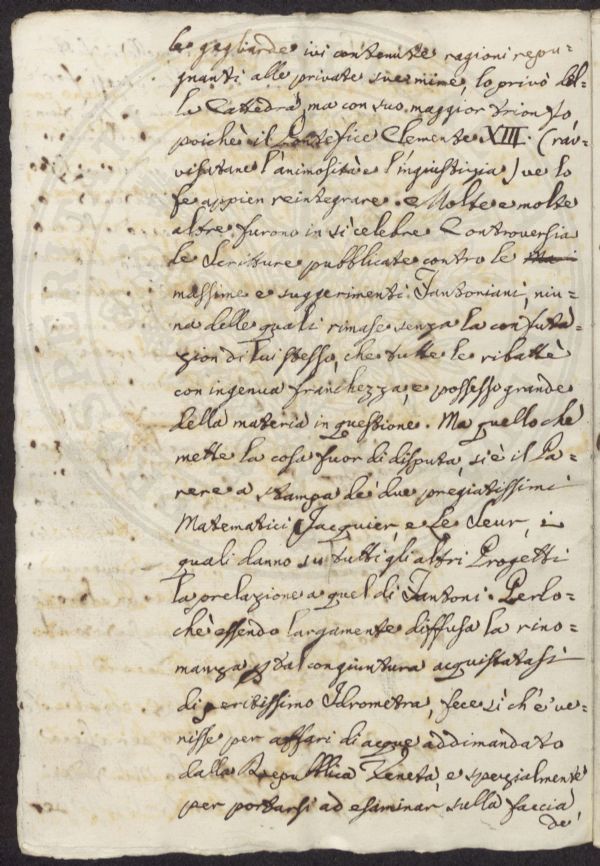 le gagliarde ivi contenute ragioni repu=
gnanti alle private sue mire, lo privò del=
la Cattedra, ma con suo maggior trionfo
poichè il Pontefice Clemente XIII. (rav=
visatane l'animosità e l'ingiustizia) ve lo
fe appien reintegrare. Molte e molte
altre furono in sì celebre Controversia
le Scritture pubblicate contro le
massime e suggerimenti Fantoniani, niu=
na delle quali rimase senza la confuta=
zion di lui stesso, che tutte le ribattè
con ingenua franchezza, e possesso grande
della materia in questione. Ma quello che
mette la cosa fuor di disputa si è il Pa=
rere a stampa de' due pregiatissimi
Matematici Jacquier, e Le Seur, i
quali danno su tutti gli altri Progetti
la prelazione a quel di Fantoni. Perlo=
chè essendo largamente diffusa la rino=
manza p tal congiuntura acquistatasi
di peritissimo Idrometra, fece sì ch'e' ve=
nisse per affari di acque addimandato
dalla Repubblica Veneta, e spezialmente
per portarsi ad esaminar sulla faccia
de'